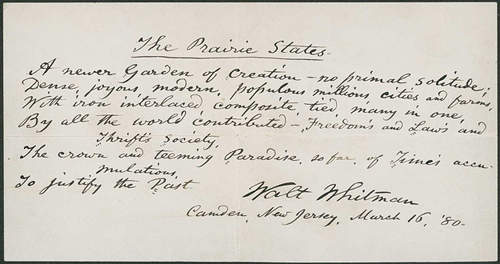 The Prairie States.
A newer Garden of Creation - no primal solitude;
Dense, joyous, modern, populous millions, cities and farms,
With iron interlaced, composite, tied, many in one,
By all the world contributed - Freedom's and Law's and
Thrift's Society,
The crown and teeming Paradise, so far, of Time's accu-
mulations,
To justify the Past.
Walt Whitman
Camden, New Jersey, March 16, '80-